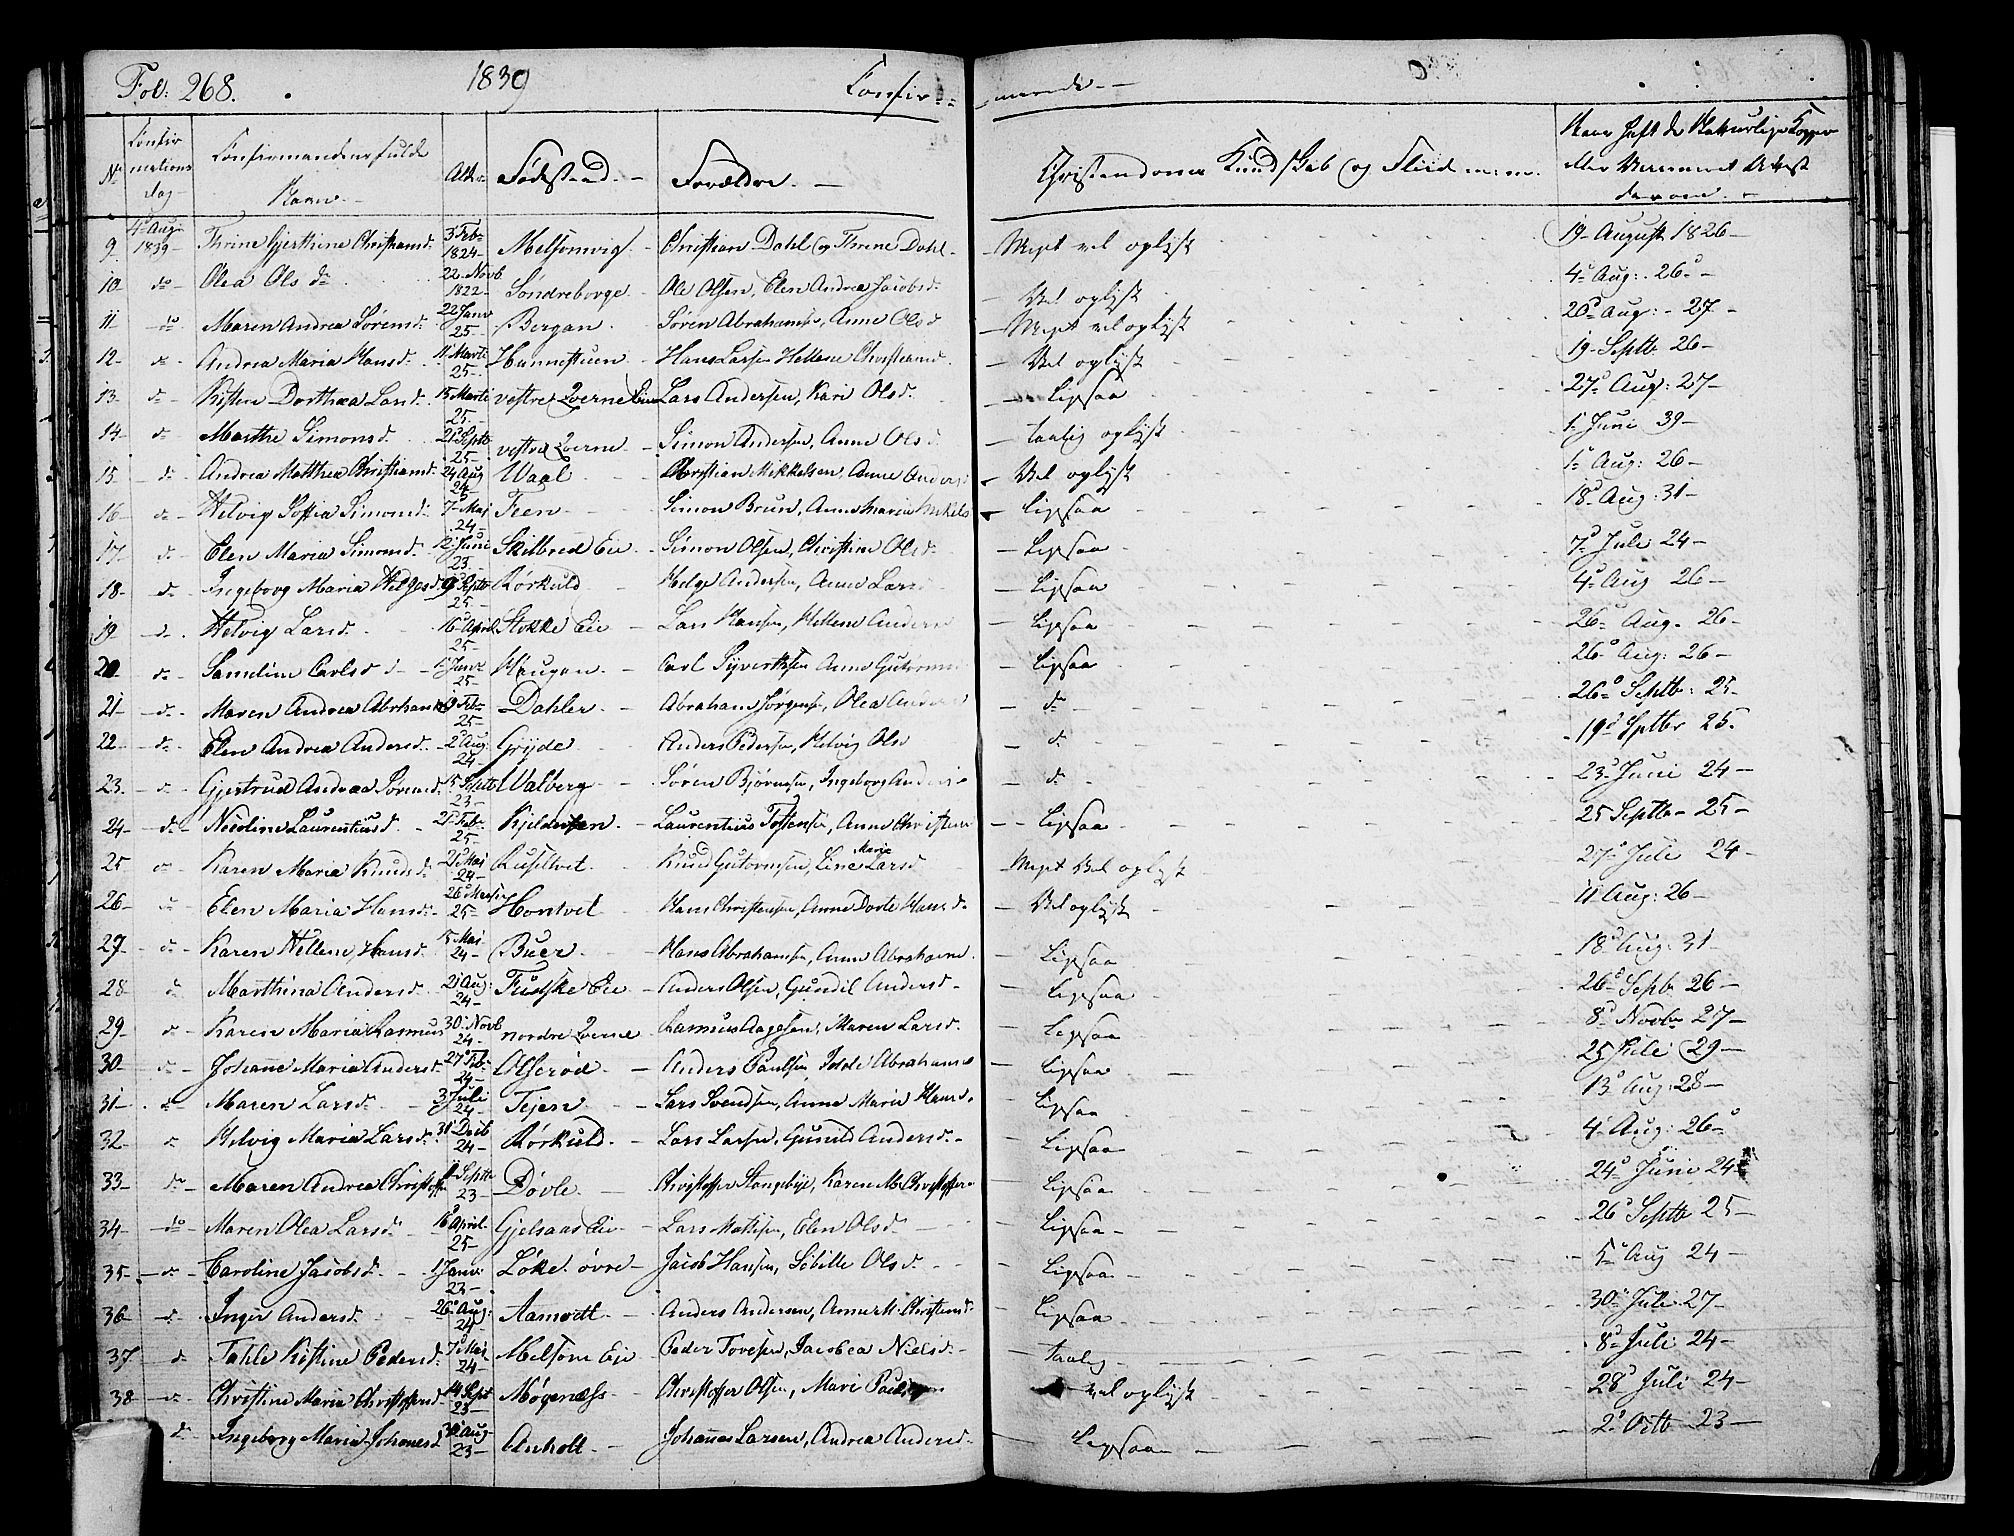 Fol: 268. 1839 Confir- -merede-
No Confirmations dag Confirmandernes fulde Navn Alder Fødested Forældre Christendoms Kundskab og Fliid m:m: Naar haft de Naturlige Kopper eller Vaccineret Attest derom
9 4de Aug: 1839 Thrine Gjerthine Christiansd. 3 Feb: 1824 Melsomvig Christian Dahl og Threne Dahl Meget vel oplyst 19 August 1826
10 do Olea Olsdr 22 Novb 1822 Søndreborge Ole Olsen, Elen Andrea Jacobsd. Vel oplyst 4de Aug: 26
11 do Maren Andrea Sørensd. 22 Janv 25 Bergan Søren Abrahamsen, Anne Olsd Meget vel oplyst 26 Aug: 27
12 do Andrea Maria Hansd. 11 Marti 25 Hannestuen Hans Larsen Hellene Christiansd Vel oplyst 19 Septb 26
13 do Kistene Dorthea Larsd. 15 Marti 25 vestre Qverne Eie Lars Andersen, Kari Olsd. Ligesaa 27 Aug: 27
14 do Marthe Simonsd. 21 Septb 25 vestre Qverne Simon Andersen, Anne Olsd. taalig oplyst 1 Juni 39
15 do Andrea Matthea Christiansd. 24 Aug 24 Waal Christian Mikkelsen, Anne Anders Vel oplyst 1 Aug: 26
16 do Helvig Soffia Simonsd. 7 Maj 24 Feen Simon Brun, Anne Maria Ligesaa 18 Aug: 31
17 do Elen Maria Simonsd. 12 Juni 23 Skilbred Eie Simon Olsen, Christine Olsd. Ligesaa 7 Juli 24
18 do Ingeborg Maria Helgesd. 9 Septb 25 Rørkuld Helge Andersen, Anne Lars Ligesaa 4 Aug 26
19 do Helvig Larsd. 16 April 25 Stokke Eie Lars Hansen, Hellene Anders Ligesaa 26 Aug. 26
20 do Sameline Carlsd 1 Janv 25 Haugan Carl Syvertsen Anne Ligesaa 26 Aug: 26
21 do Maren Andrea Abrhams 9 Feb: 25 Dahler Abraham Jørgens, Olea Anders do 26 Septb: 25
22 do Elen Andrea Andersd. 2 Aug 24 Gryde Anders Pedersen, Helvig Ols do 19 Sptbr 25.
23 do Gjertrud Andrea Sørensd. 15 Septb 23 Valberg Søren Bjørnsen, Ingeborg Anders do 23 Juni 24
24 do Nicoline Laurentiusd. 21 Feb: 25 Laurentius Tostensen, Anne Christens Ligesaa 25 Septb 25
25 do Karen Maria Knudsd. 21 Maj 24 Ruseltvet Knud Gutormsen, Line Marie Larsd Meget Vel oplyst 27 Juli 24
26 do Elen Maria Hansd. 26 25 Hontvet Hans Christensen, Anne Dorte Hansd. Vel oplyst 11 Aug: 26
27 do Karen Hellene Hansd. 15 Maj 24 Buer Hans Abrahamsen, Anne Abrahams Ligesaa 18 Aug: 31
28 do Marthina Andersd. 21 Aug: 24 Fuske Eie Anders Olsen, Gunild Andersd. Ligesaa 26 Septb. 26
29 do Karen Maria Rasmus 30 Novb 24 nordre Qverne Rasmus Aagesen, Maren Larsd. Ligesaa 8 Novbr 27
30 do Johanne Maria Andersd. 27 Feb: 24 Olserød Anders Paulsen, Abrahams Ligesaa 25 Juli 29
31 do Maren Larsd. 3 Juli 24 Fejen Lars Svendsen, Anne Marie Hansd. Ligesaa 13 Aug: 28
32 do Helvig Maria Larsd. 31 Decb 24 Rørkuld Lars Larsen, Gunild Andersd. Ligesaa 4 Aug: 26
33 do Maren Andrea Christoff 11 Septb 23 Døvle Christoffer Stangebye, Karen M. Christoffers Ligesaa 24 Juni 24
34 do Maren Olea Larsd. 16 April 25 Gjelsaas Eie Lars Mathisen, Elen Olsd. Ligesaa 26 Septb 25
35 do Caroline Jacobsd. 1 Janv: 23 Løke øvre Jacob Hansen, Sibille Olsd. Ligesaa 5 Aug 24
36 do Inger Andersd. 26 Aug: 24 Aamodt Anders Andersen, Anne M. Christensd. Ligesaa 30 Juli 27
37 do Tahle Kistine Pedersd. 7 Maj 24 Melsom Eie Peder Toresen, Jacobea Nielsd. taalig 8 Juli 24
38 do Christine Maria Christoffersd 14 Sept 23 Møgenæss Christoffer Olsen, Mari Vel oplyst 28 Juli 24
do Ingeborg Maria Johannesd 30 Aug 23 Anholt Johannes Larsen, Andrea Andersd. Ligesaa 2 Octb 23